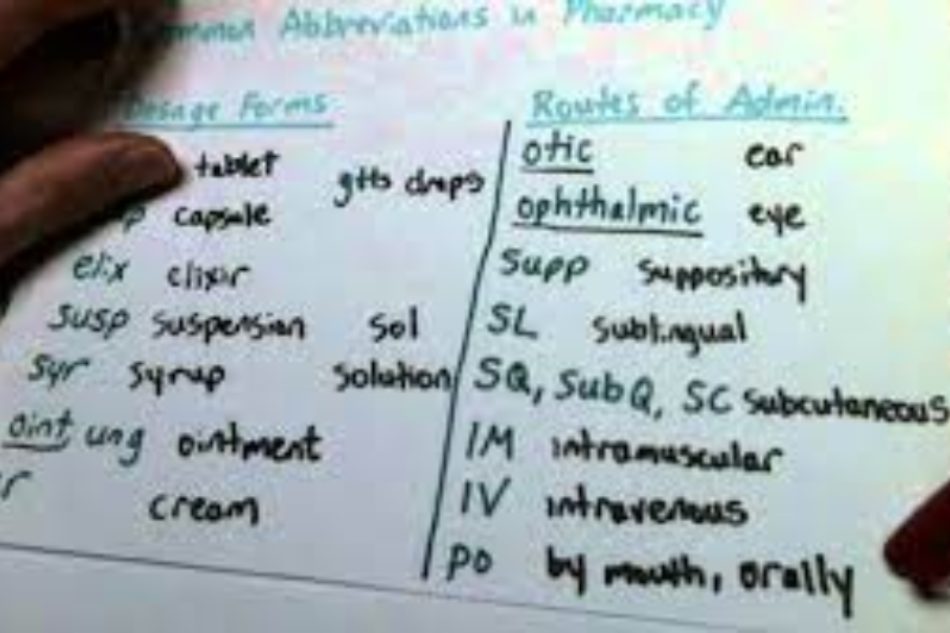 Abbreviations in Pharmacy
Forms
tablet gtts drops
capsule
elix elixir
susp suspension sol
syr syrup solution
oint ung ointment
cream
Routes of Admin.
otic ear
ophthalmic eye
supp suppository
SL sublingual
SQ, SubQ, SC subcutaneous
IM intramuscular
IV intravenous
po by mouth, orally